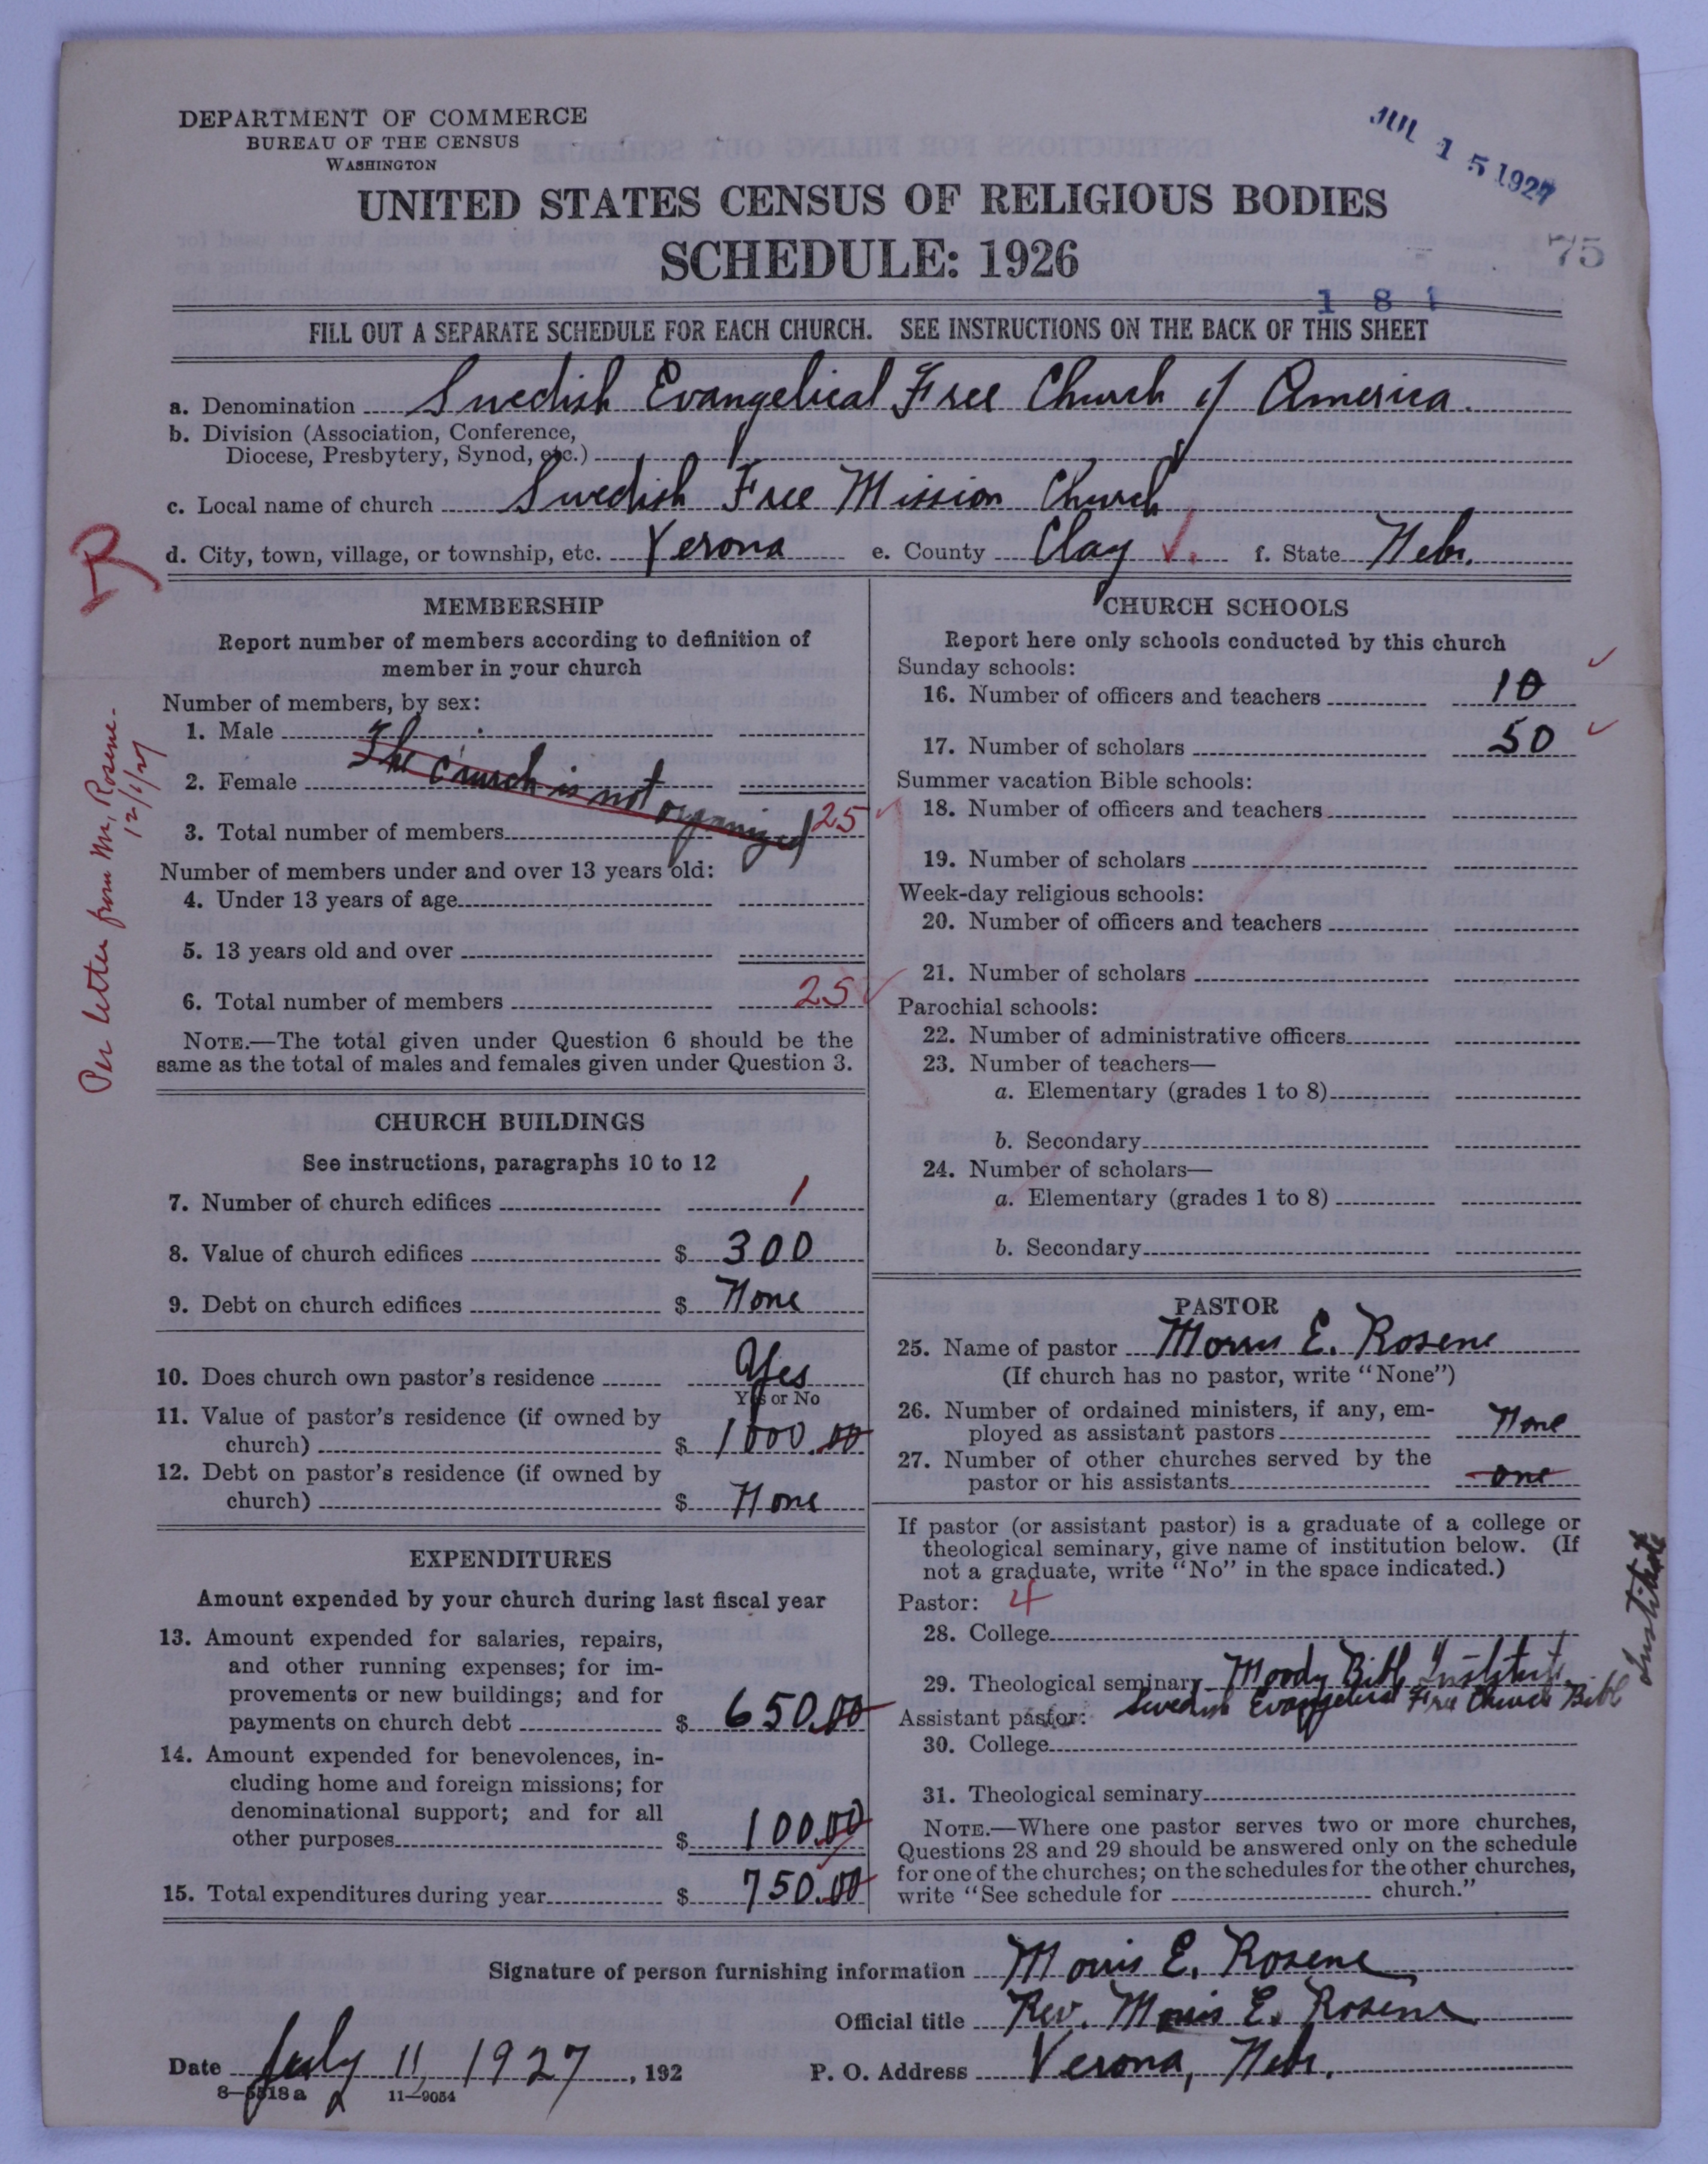 DEPARTMENT OF COMMERCE
BUREAU OF THE CENSUS
WASHINGTON
JUL 15 1927
UNITED STATES CENSUS OF RELIGIOUS BODIES
SCHEDULE: 1926
75
181
FILL OUT A SEPARATE SCHEDULE FOR EACH CHURCH. SEE INSTRUCTIONS ON THE BACK OF THIS SHEET
a. Denomination Swedish Evangelical Free Church of America.
b. Division (Association, Conference,
Diocese, Presbytery, Synod, etc.)
c. Local name of church Swedish Free Mission Church
d. City, town, village, or township, etc. Verona e. County Clay f. State Nebr.
Per letter from Mr. Rosene.
12/1/27
MEMBERSHIP
Report number of members according to definition of
member in your church
Number of members, by sex:
1. Male
The church is not organized
2. Female
3. Total number of members 25
Number of members under and over 13 years old:
4. Under 13 years of age
5. 13 years old and over
6. Total number of members 25
NOTE.—The total given under Question 6 should be the
same as the total of males and females given under Question 3.
CHURCH BUILDINGS
See instructions, paragraphs 10 to 12
7. Number of church edifices 1
8. Value of church edifices $ 300
9. Debt on church edifices $ None
10. Does church own pastor's residence Yes
Yes or No
11. Value of pastor's residence (if owned by
church) $ 1000.00
12. Debt on pastor's residence (if owned by
church) $ None
EXPENDITURES
Amount expended by your church during last fiscal year
13. Amount expended for salaries, repairs,
and other running expenses; for im-
provements or new buildings; and for
payments on church debt $ 650.00
14. Amount expended for benevolences, in-
cluding home and foreign missions; for
denominational support; and for all
other purposes $ 100.00
15. Total expenditures during year $ 750.00
CHURCH SCHOOLS
Report here only schools conducted by this church
Sunday schools:
16. Number of officers and teachers 10
17. Number of scholars 50
Summer vacation Bible schools:
18. Number of officers and teachers
19. Number of scholars
Week-day religious schools:
20. Number of officers and teachers
21. Number of scholars
Parochial schools:
22. Number of administrative officers
23. Number of teachers—
a. Elementary (grades 1 to 8)
b. Secondary
24. Number of scholars—
a. Elementary (grades 1 to 8)
b. Secondary
PASTOR
25. Name of pastor Morris E. Rosene
(If church has no pastor, write "None")
26. Number of ordained ministers, if any, em-
ployed as assistant pastors None
27. Number of other churches served by the
pastor or his assistants one
If pastor (or assistant pastor) is a graduate of a college or
theological seminary, give name of institution below. (If
not a graduate, write "No" in the space indicated.)
Pastor: 4
28. College
29. Theological seminary Moody Bible Institute
Swedish Evangelical Free Church Bible Institute
Assistant pastor:
30. College
31. Theological seminary
NOTE.—Where one pastor serves two or more churches,
Questions 28 and 29 should be answered only on the schedule
for one of the churches; on the schedules for the other churches,
write "See schedule for church."
Signature of person furnishing information Morris E. Rosene
Official title Rev. Morris E. Rosene
Date July 11, 1927, 192 P. O. Address Verona, Nebr.
8—5518 a 11—9054